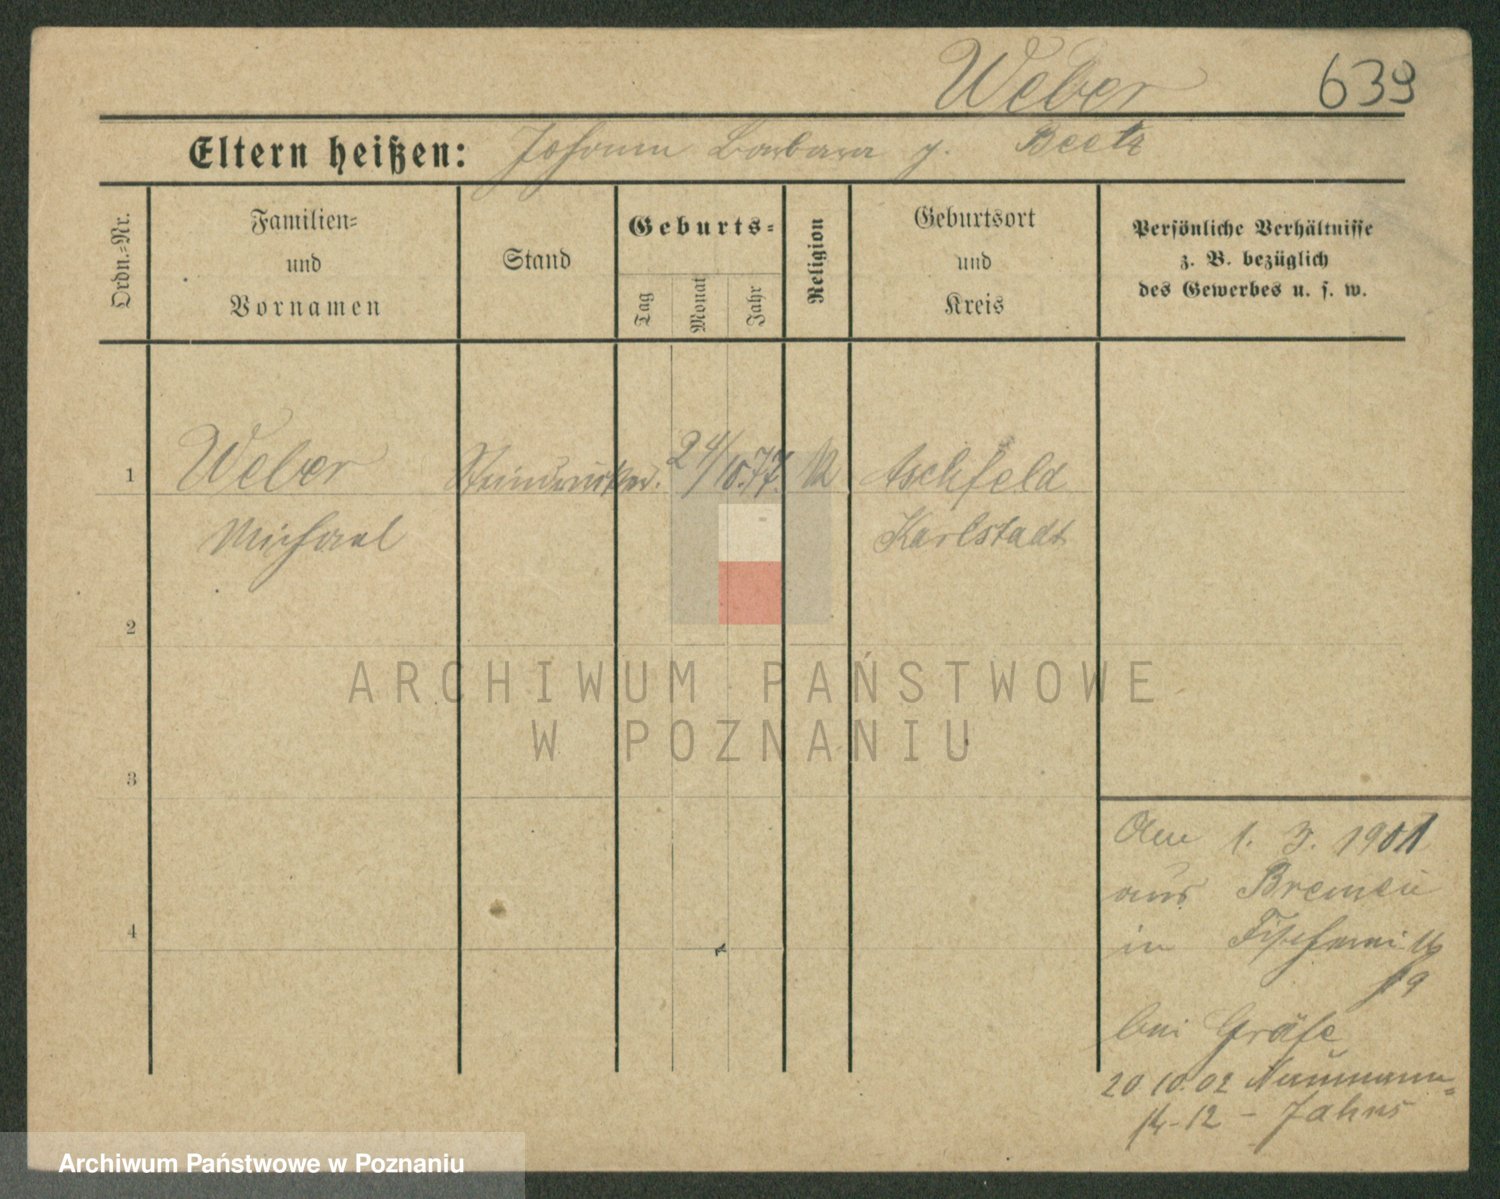 Weber 639
Eltern heißen: Johann Barbara g. Beetz
Ordn.-Nr.
Familien-
und
Vornamen
Stand
Geburts-
Tag
Monat
Jahr
Religion
Geburtsort
und
Kreis
Persönliche Verhältnisse
z. B. bezüglich
des Gewerbes u. s. w.
1 Weber Steindrucker. 24/10.77. Aschfeld
Michael Karlstadt
2
3
4
ARCHIWUM PAŃSTWOWE
W POZNANIU
Den 1. 3. 1901
aus Bremen
in
bei Gräfe
20 10.02 Naumann-
str 12 - Jahns
Archiwum Państwowe w Poznaniu